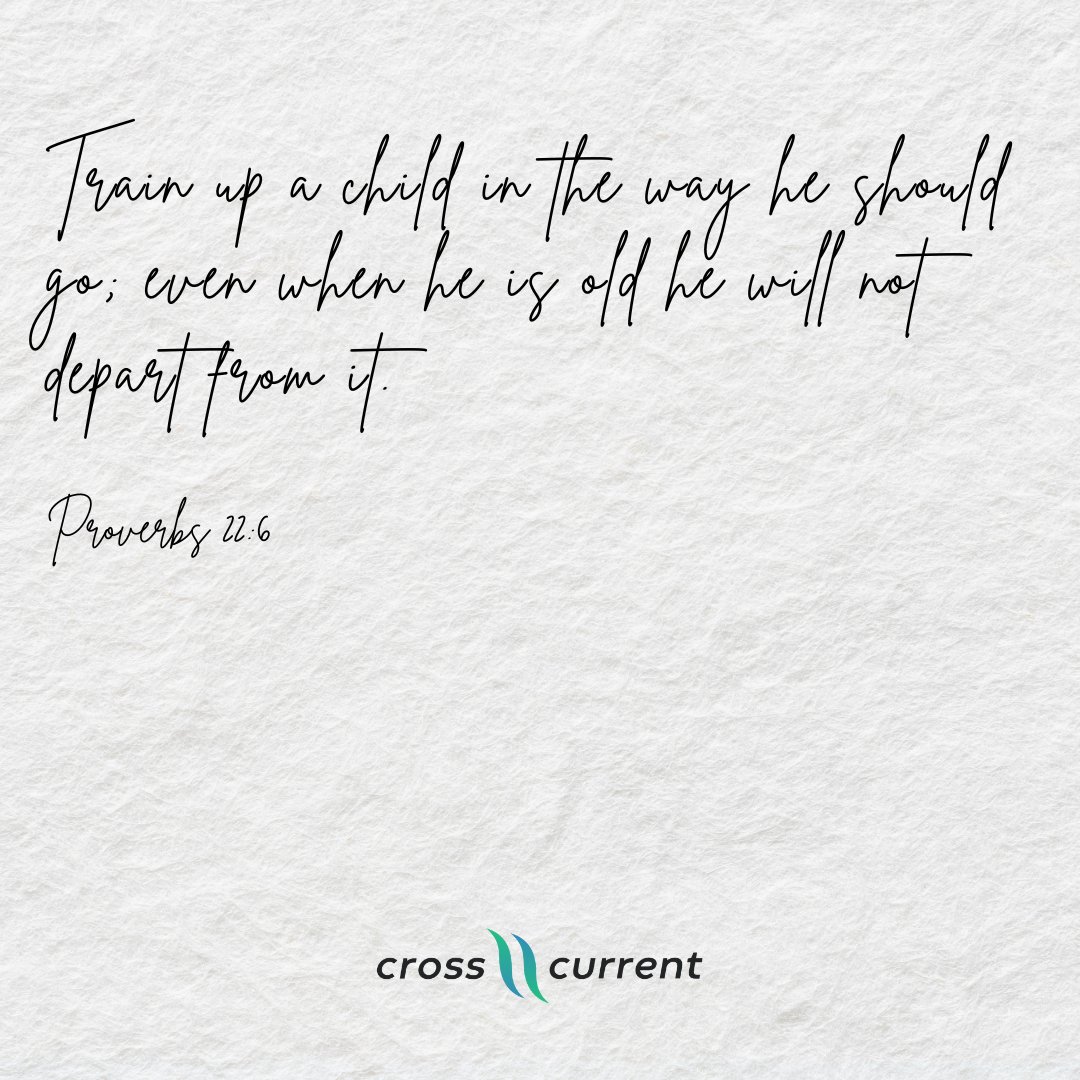 Train up a child in the way he should
go; even when he is old he will not
depart from it.
Proverbs 22:6
cross current